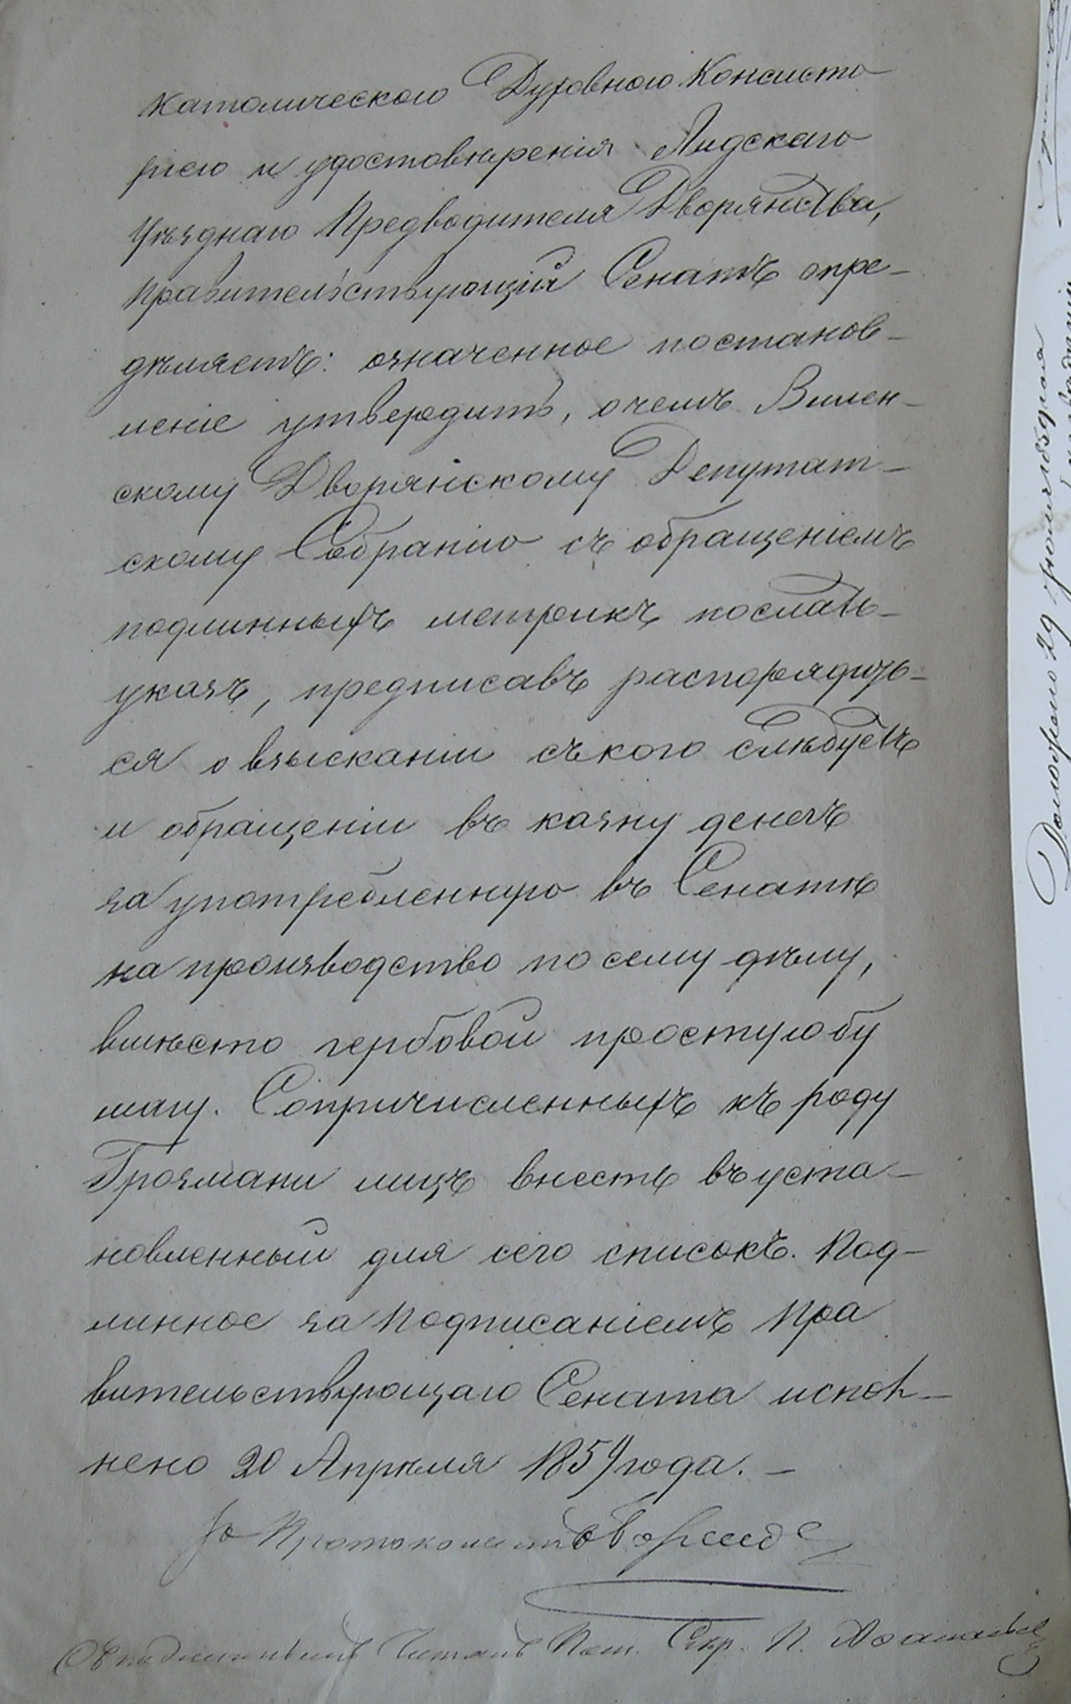 католическою Духовною Консисто
ріею и удостовѣренія Лидскаго
Уѣзднаго Предводителя Дворянства,
Правительствующій Сенатъ опре-
дѣляетъ: означенное постанов-
леніе утвердить, о чемъ Вилен-
скому Дворянскому Депутат-
скому Собранію съ обращеніемъ
подлинныхъ метрикъ послать
указъ, предписавъ распорядить-
ся о взысканіи съ кого слѣдуетъ
и обращеніи въ казну денегъ
за употребленную въ Сенатѣ
на производство по сему дѣлу,
вмѣсто гербовой простую бу
магу. Сопричисленныхъ къ роду
Грозмани лицъ внесть въ уста-
новленный для сего списокъ. Под-
линное за Подписаніемъ Пра
вительствующаго Сената испол-
нено 20 Апрѣля 1859 года. -
За Протоколиста
Съ подлиннымъ Читалъ Пом. Секр. П.